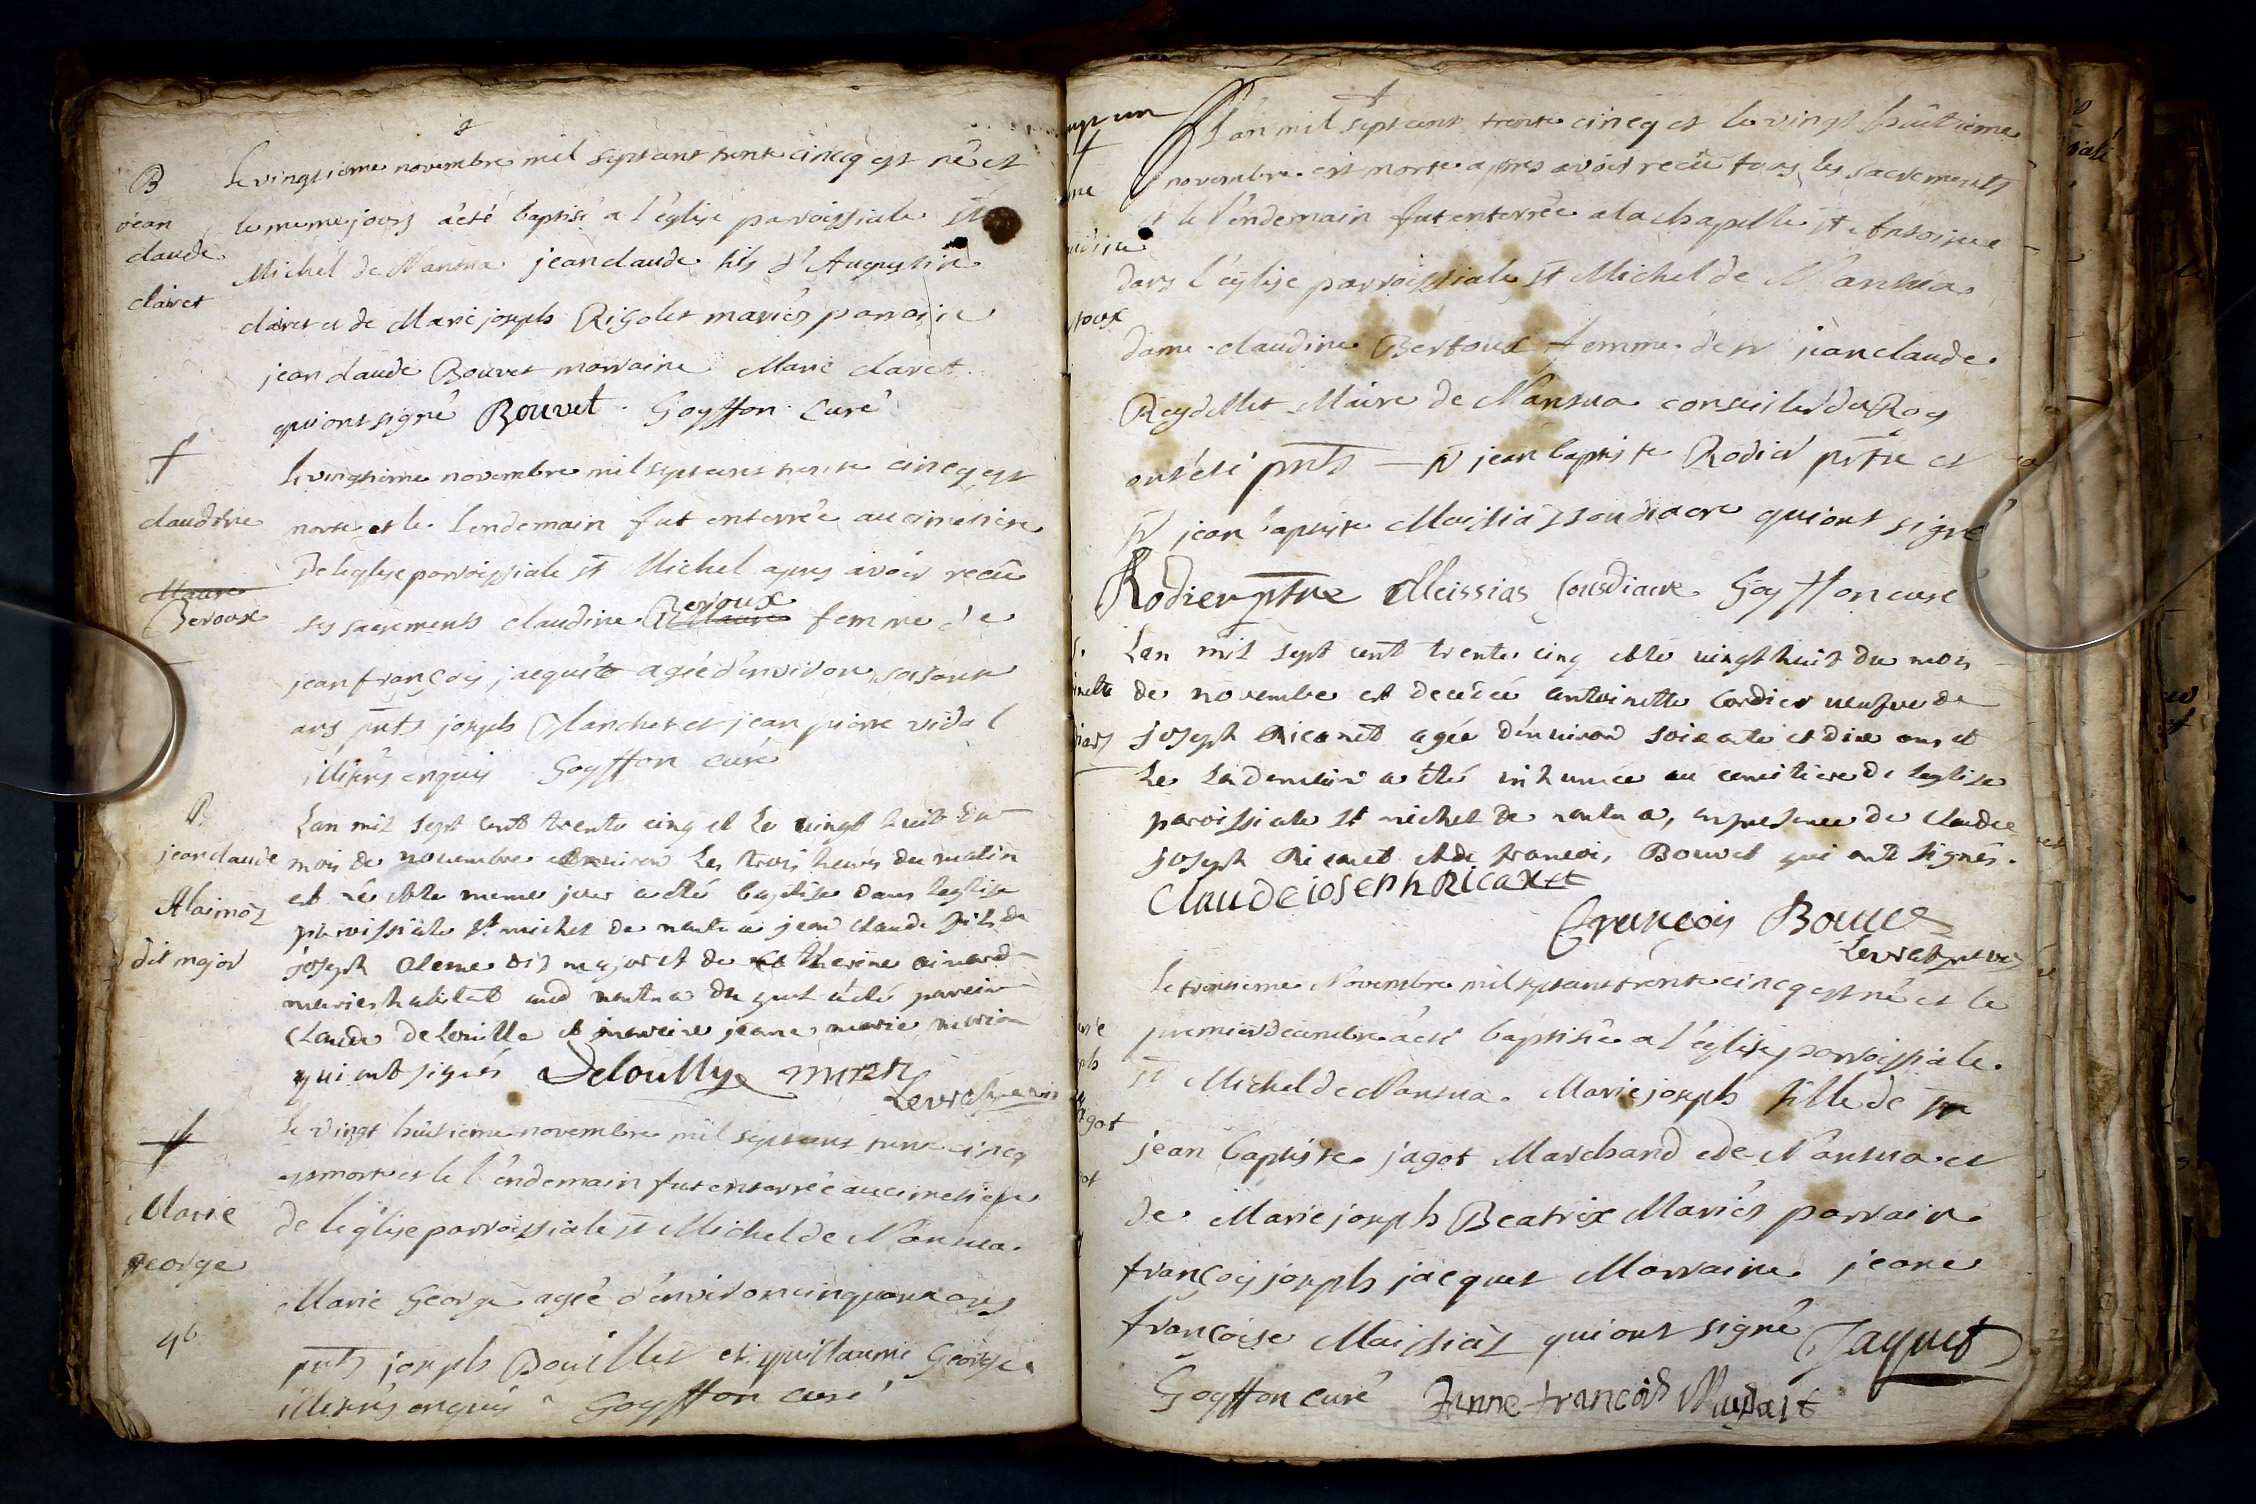 B
jean
claude
clairet
Le vingtieme novembre mil septcent trente cincq est né et
le meme jours a eté baptisé a l'église parroissiale st
Michel de Nantua jean claude fils d'Augustin
clairet et de Marie joseph Rigolet mariés parrain
jean claude Bouvet marraine Marie claret
qui ont signé Bouvet. Goyffon curé
†
claudine
Maure
Beroux
Le vingtieme novembre mil septcent trente cincq est
morte et le lendemain fut enterrée au cimetiere
De l'eglise parroissiale st Michel apres avoir recû
ses sacrements claudine Beroux femme de
jean françois jacquet agée d'environ soisante
ans pnts joseph Blanchet et jean pierre vidal
illitérés enquis Goyffon curé
B
jean claude
Alaimoz
dit major
Lan mil sept cent trente cinq et le vingt huit du
mois de novembre environ les trois heures du matin
est né et le meme jour a eté baptisé dans leglise
paroissiale st michel de nantua jean claude fils de
joseph aleme dit major et de catherine ainard
maries habitat aud nantua du quel a été parein
claude delouille et mareine jeane marie mirion
qui ont signés Deloully
†
Marie
george
Le vingt huitieme novembre mil septcent trente cincq
est morte et le l'endemain fut enterrée au cimetiere
de l'église parroissiale st Michel de Nantua.
Marie George agée d'environ cinquante ans
pnts joseph Bouillet et guillaume George
illitérés enquis Goyffon curé
L'an mil septcent trente cincq et le vingt huitieme
novembre est morte apres avoir recû tous les sacrements
et le l'endemain fut enterrée a la chapelle st Antoine
dans l'église parroissiale st Michel de Nantua
dame claudine Bertoux femme de sr jean claude
Reydellet Maire de Nantua conseiller du Roy
ont été pnts — sr jean baptiste Rodier prtre et
sr jean baptiste Maissiaz soudiacre qui ont signé
Rodier ptre Meissias sousdiacre Goyffon curé
Lan mil sept cent trente cinq et le vingt huit du mois
de novembre est decedée antoinette cordier veufve de
joseph Ricanet agée d'environ soixante et dix ans et
Le Lademain a eté inhumée au cemitiere de leglise
paroissiale st michel de nantua, en presence de claude
joseph Ricanet et de francois Bouvet qui ont signés.
Claude ioseph Ricanet
François Bouvet
Le trentieme Novembre mil septcent trente cincq est né et le
premier decembre a eté baptisée a l'église parroissiale
st Michel de Nantua. Marie joseph fille de sr
jean baptiste jagot Marchand de Nantua et
de Marie joseph Beatrix Mariés parrain
françois joseph jacquet Marraine jeane
françoise Maissiaz qui ont signé Jaquet
Goyffon curé